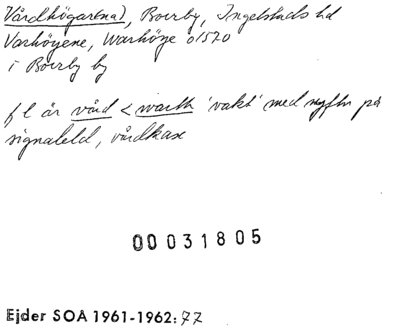 Vårdhögar(na), Borrby, Ingelstads hd
Varhöyene, Warhöye o1570
i Borrby by
f l är vård < warth 'vakt' med syftn på
signaleld, vårdkase
00031805
Ejder SOA 1961-1962: 77